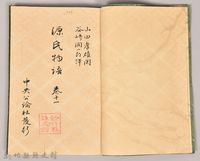 山田孝雄閲
谷崎潤一郎譯
源氏物語 巻十一
中央公論社發行